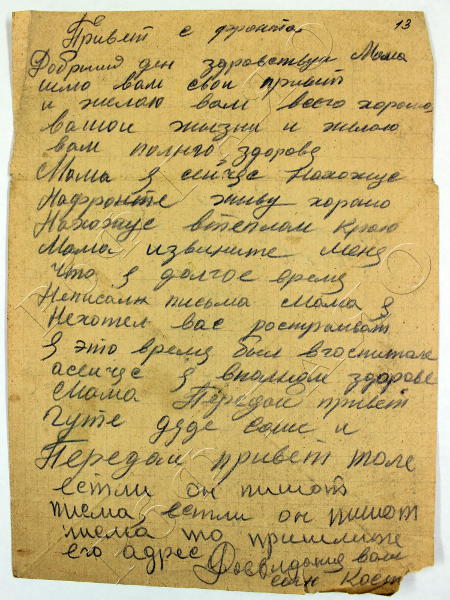 13
Привет с фронта
Добрыия ден здравствуи Мама
шлю вам свои привит
и желаю вам всего хорошо
вашои жизни и желаю
вам полнго здоровя
Мама я сеичас нахожус
Нафронте живу хорошо
Нахожус втеплом краю
Мама извините меня
что я долгое время
Неписали письма Мама я
Нехотел вас
я это время был вгоспитале
асеичас я вполном здорове
Мама Передои привет
дяде саши и
Передаи привет толе
естли он пишот
писма естли он пишот
писма то пришлите
его адрес Досвидания вам
сын Костя